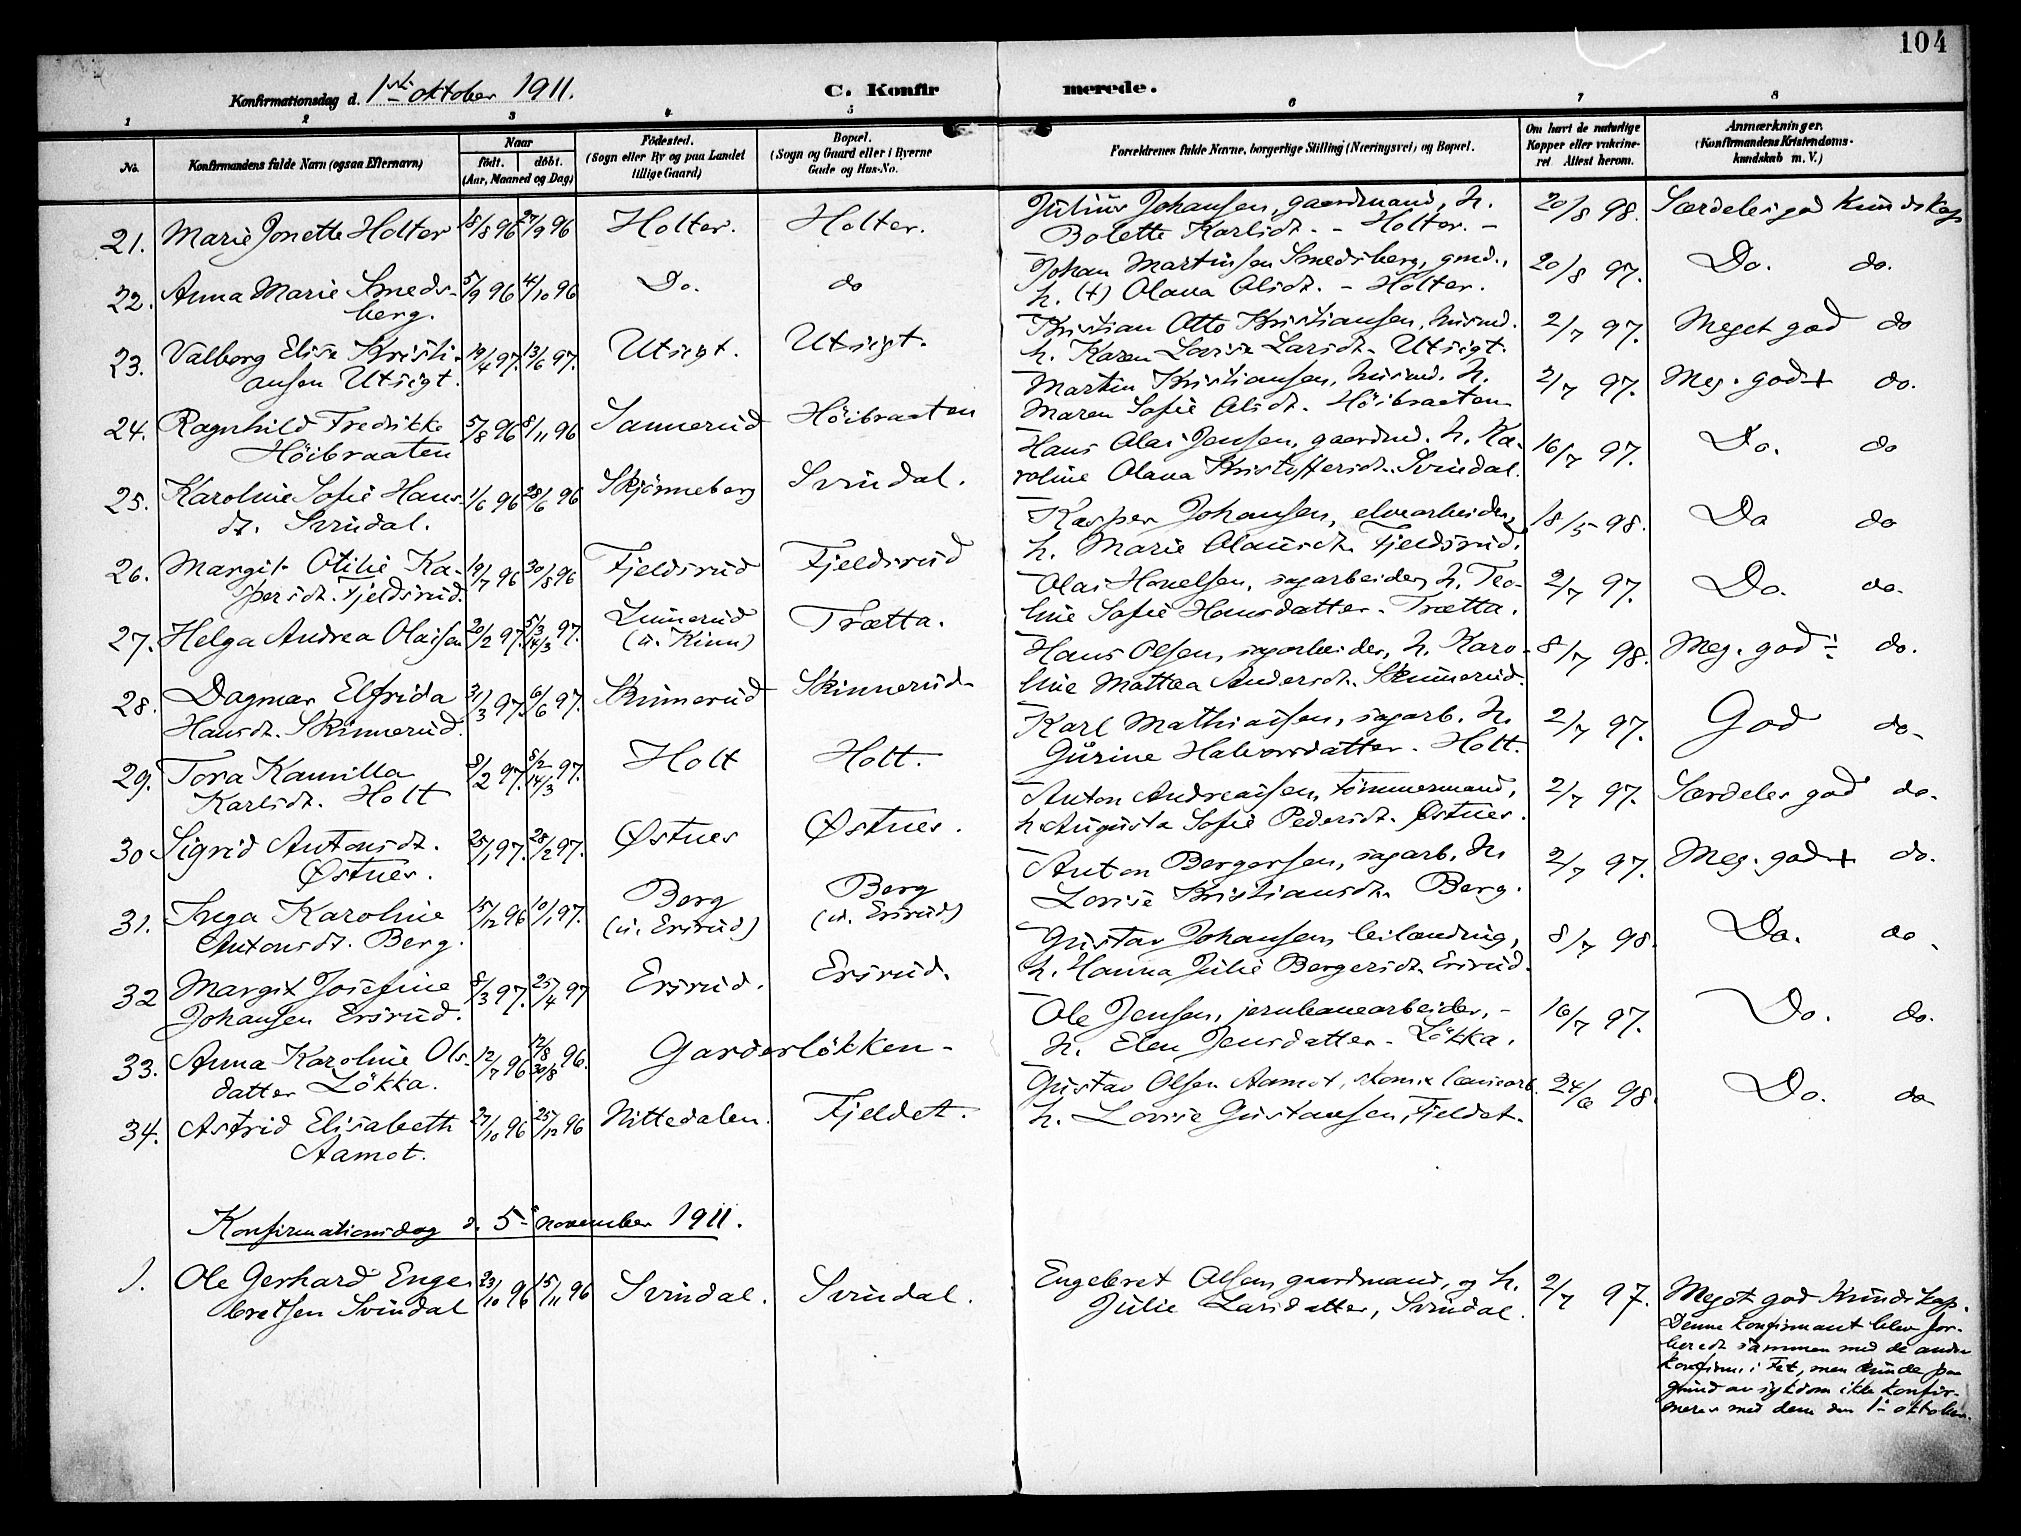 104
Konfirmationsdag d. 1ste oktober 1911.
C. Konfirmerede.
1 2 3 4 5 6 7 8
No.
Konfirmandens fulde Navn (ogsaa Efternavn)
Naar
født. døbt.
(Aar, Maaned og Dag)
Fødested.
(Sogn eller By og paa Landet
tillige Gaard)
Bopæl.
(Sogn og Gaard eller i Byerne
Gade og Hus-No.
Forældrenes fulde Navne, borgerlige Stilling (Næringsvei) og Bopæl.
Om havt de naturlige
Kopper eller vakcine-
ret Attest herom.
Anmærkninger.
(Konfirmandens Kristendoms-
kundskab m. V.)
21. Marie Jonette Holter 18/8 96 27/9 96 Holter. Holter. Julius Johansen, gaardmand, h. 20/8 98. Særdeles god Kundskap
Bolette Karlsdt. - Holter. -
22. Anna Marie Smeds- 5/9 96 4/10 96 Do. do Johan Martinsen Smedsberg, gmd., 20/8 97. Do. do.
berg. h. (+) Olava Olsdt. - Holter.
23. Valborg Elise Kristi- 19/4 97. 13/6 97. Utsigt. Utsigt. Kristian Otto Kristiansen, husmd. 2/7 97. Meget god do
ansen Utsigt. h. Karen Lovise Larsdt. Utsigt.
24. Ragnhild Fredrikke 5/8 96 8/11 96 Sannerud Höibraaten Martin Kristiansen, husmd. h. 2/7 97. Meg. god + do.
Höibraaten Maren Sofie Olsdt. Höibraaten
25. Karoline Sofie Hans- 1/6 96 28/6 96 Skjönneberg Svindal. Hans Olai Jensen, gaardmd. h. Ka- 16/7 97. Do. do
dt. Svindal. roline Olava Kristoffersdt. Svindal.
26. Margit Otilie Ka- 19/7 96 30/8 96 Fjeldsrud Fjeldsrud Kasper Johansen, elvearbeider, 18/5 98. Do do
spersdt. Fjeldsrud. h. Marie Olausdt. Fjeldsrud.
27. Helga Andrea Olaisen 20/2 97. 5/3 14/3 97. Linnerud Trætta. Olai Hovelsen, sagarbeider, h. Teo- 2/7 97. Do. do.
(u. Kinn) line Sofie Hansdatter. Trætta.
28. Dagmar Elfrida 31/3 97. 6/6 97. Skinnerud Skinnerud- Hans Olsen, sagarbeider, h. Karo- 8/7 98. Meg. god ÷ do.
Hansdt. Skinnerud. line Mattea Andersdt. Skinnerud.
29. Tora Kamilla 8/2 97. 8/2 14/3 97. Holt Holt. Karl Mathiassen, sagarb. h. 2/7 97. God do-
Karlsdt. Holt Gurine Halvorsdatter. Holt.
30 Sigrid Antonsdt. 25/1 97. 28/2 97. Østnes Østnes. Anton Andreassen, Tömmermand, 2/7 97. Særdeles god do-
Østnes. h Augusta Sofie Pedersdt. Østnes.
31. Inga Karoline 15/12 96 10/1 97. Berg Berg Anton Bergersen, sagarb. h. 2/7 97. Meg. god + do.
Antonsdt. Berg. (u. Ersrud) (u. Ersrud) Lovise Kristiansdt. Berg.
32 Margit Josefine 8/3 97. 25/4 97 Ersrud. Ersrud. Gustav Johansen, leilænding, 8/7 98. Do. do-
Johansen Ersrud. h. Hanna Julie Bergersdt. Ersrud.
33. Anna Karoline Ols- 12/7 96 12/8 30/8 96. Garderlökken- Ole Jensen, jernbanearbeider, - 16/7 97. Do. do.
datter Lökka. h. Elen Jensdatter - Lökka.
34. Astrid Elisabeth 27/10 96 25/12 96 Nittedalen. Fjeldet. Gustav Olsen Aamot, 24/6 98. Do. do
Aamot. h. Lovise Gustavsen, Fjeldet.
Konfirmationsdag d. 5te november 1911.
1. Ole Gerhard Enge- 23/10 96 15/11 96 Svindal. Svindal. Engebret Olsen, gaardmand, og h. 2/7 97. Meget god Kundskap.
bretsen Svindal Julie Larsdatter, Svindal.
Denne konfirmant blev for-
beredt sammen med de andre
konfirm. i Fet, men kunde paa
grund av sykdom ikke konfir-
meres med dem den 1ste oktober.